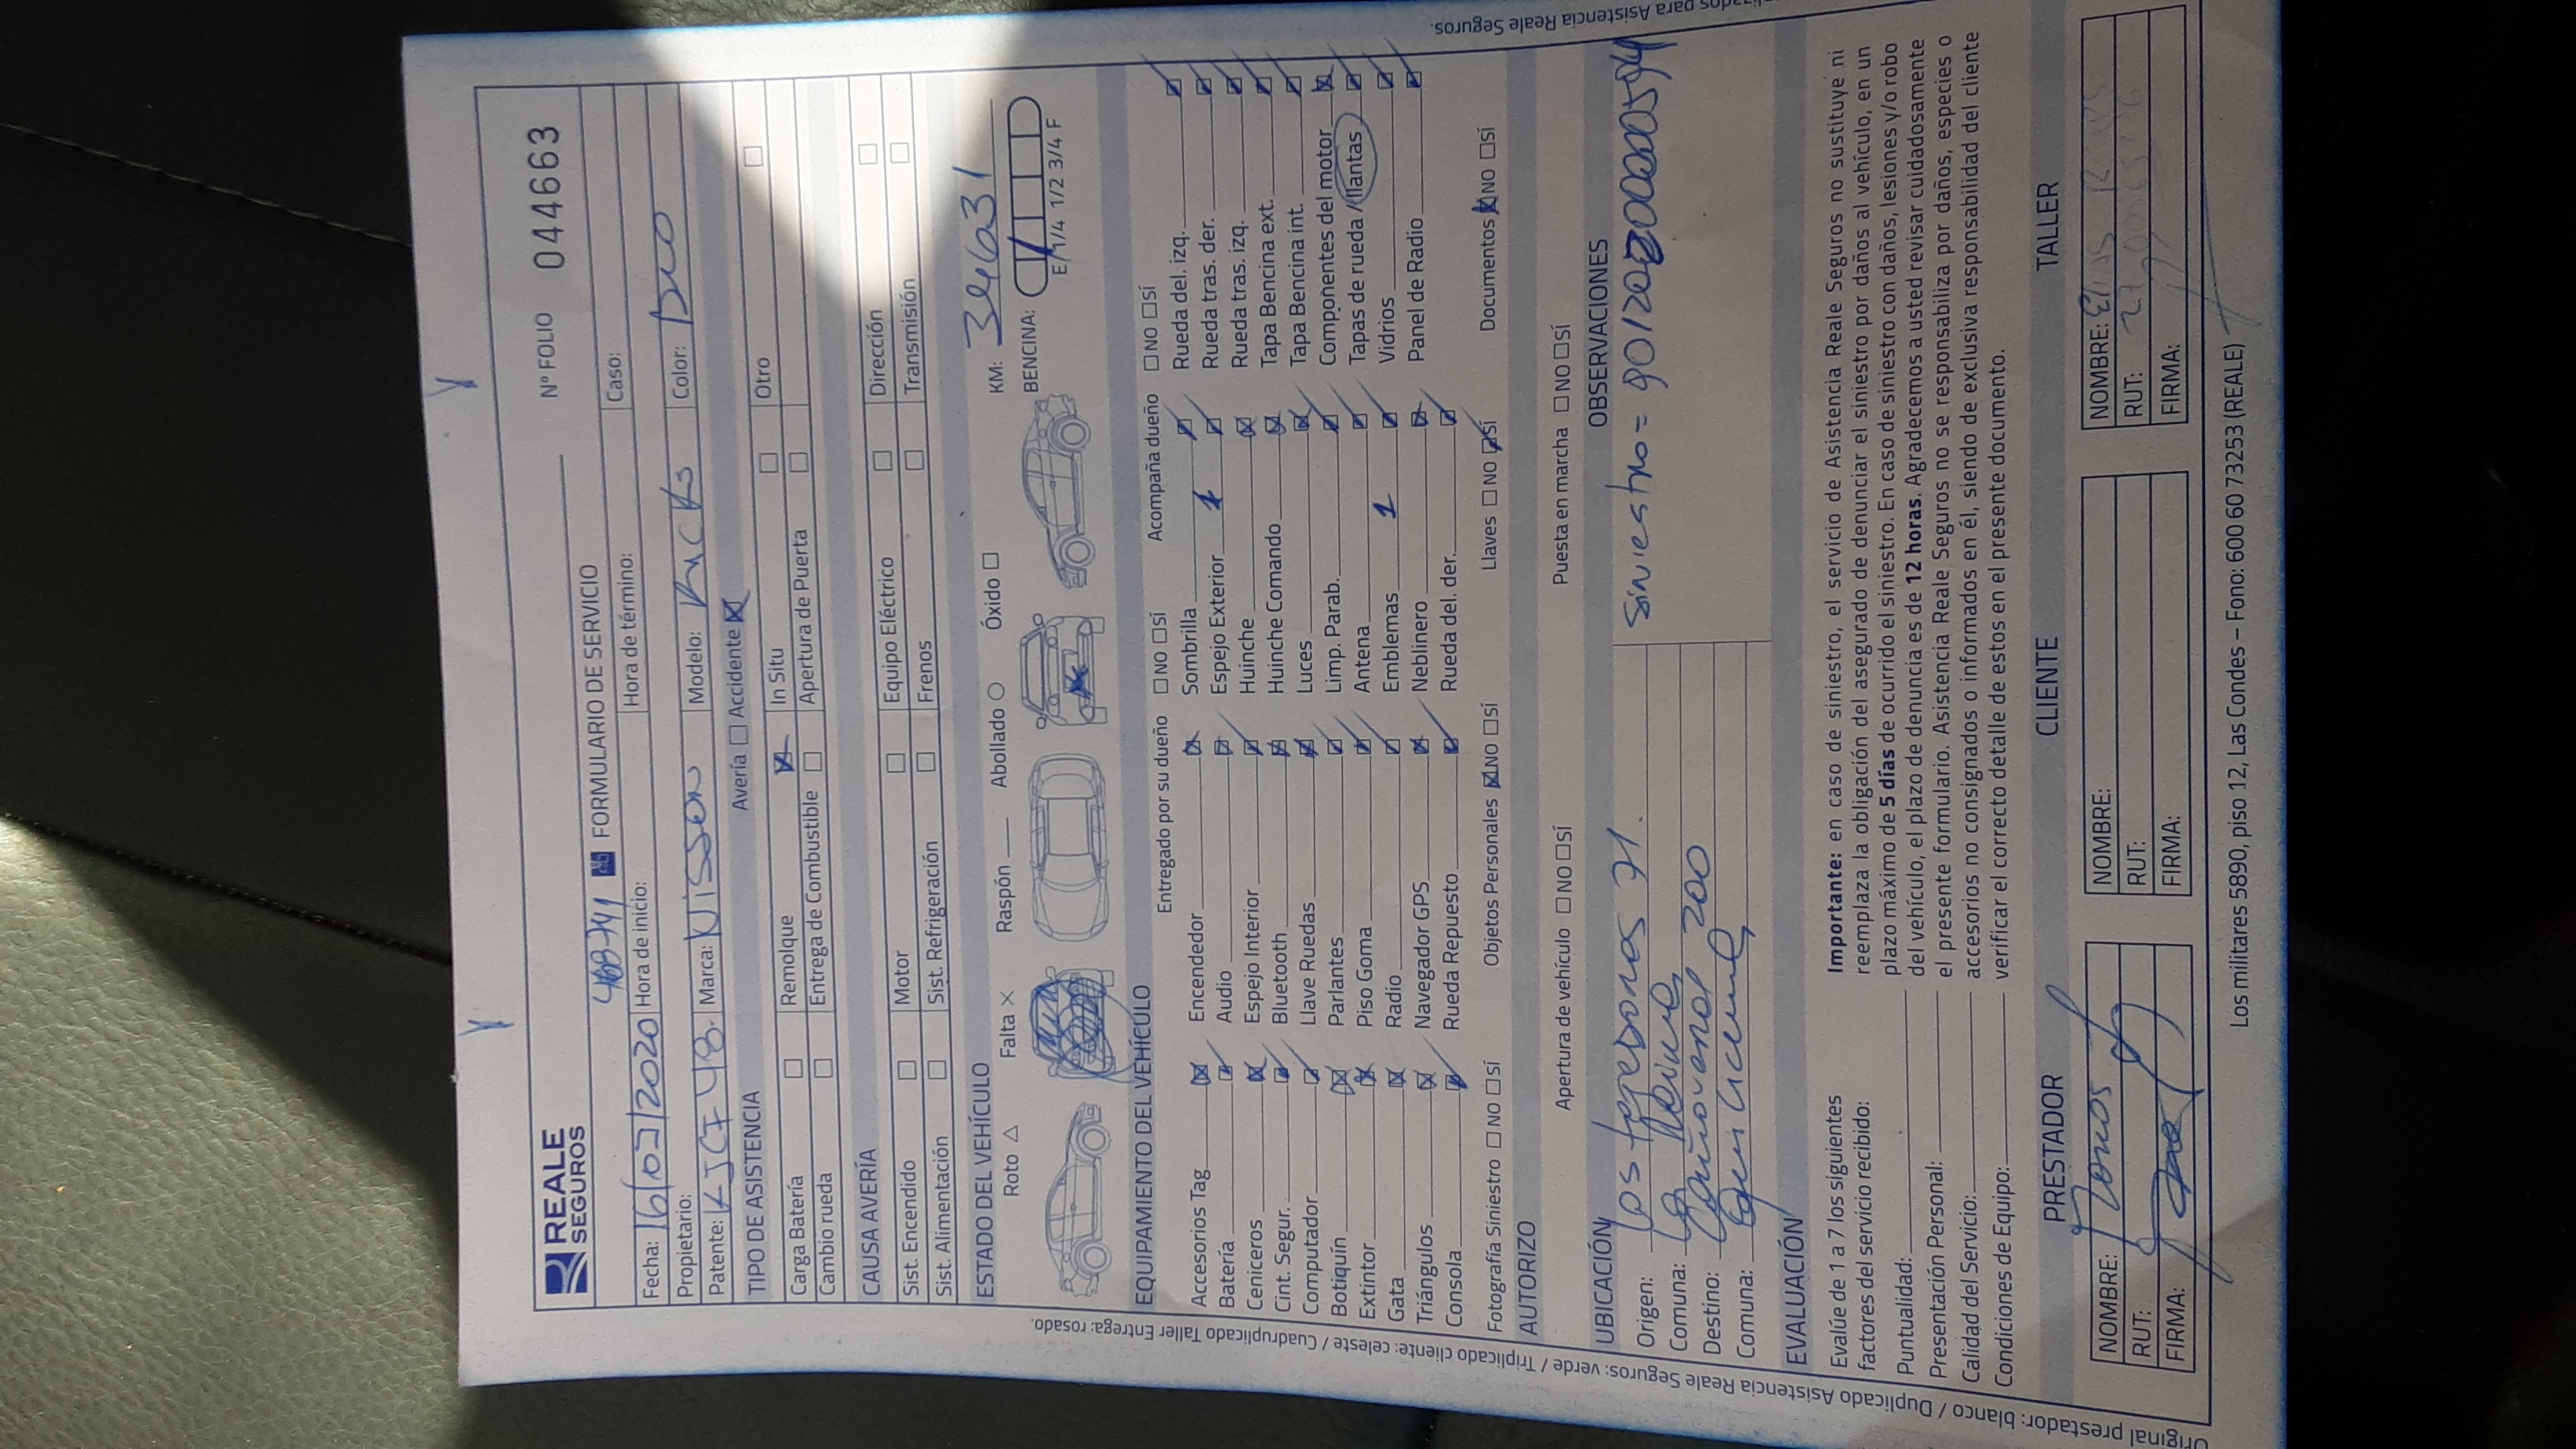 REALE
SEGUROS
FORMULARIO DE SERVICIO
Nº FOLIO 044663
Fecha: 16/02/2020 Hora de inicio: Hora de término: Caso:
Propietario:
Patente: KJCF 48. Marca: Nissan Modelo: Kicks Color:
TIPO DE ASISTENCIA Avería Accidente
Carga Batería Remolque In Situ Otro
Cambio rueda Entrega de Combustible Apertura de Puerta
CAUSA AVERÍA
Sist. Encendido Motor Equipo Eléctrico Dirección
Sist. Alimentación Sist. Refrigeración Frenos Transmisión
ESTADO DEL VEHÍCULO KM: 34631
Roto Falta Raspón Abollado Óxido BENCINA:
E 1/4 1/2 3/4 F
EQUIPAMIENTO DEL VEHÍCULO Entregado por su dueño NO SÍ Acompaña dueño NO SÍ
Accesorios Tag Encendedor Sombrilla Rueda del. izq.
Batería Audio Espejo Exterior 1 Rueda tras. der.
Ceniceros Espejo Interior Huinche Rueda tras. izq.
Cint. Segur. Bluetooth Huinche Comando Tapa Bencina ext.
Computador Llave Ruedas Luces Tapa Bencina int.
Botiquín Parlantes Limp. Parab. Componentes del motor
Extintor Piso Goma Antena Tapas de rueda / llantas
Gata Radio Emblemas 1 Vidrios
Triángulos Navegador GPS Neblinero Panel de Radio
Consola Rueda Repuesto Rueda del. der.
Fotografía Siniestro NO SÍ Objetos Personales NO SÍ Llaves NO SÍ Documentos NO SÍ
AUTORIZO
Apertura de vehículo NO SÍ Puesta en marcha NO SÍ
UBICACIÓN OBSERVACIONES
Origen: Los 71.
Comuna: La Reina
Destino: 200
Comuna:
Siniestro =
EVALUACIÓN
Evalúe de 1 a 7 los siguientes
factores del servicio recibido:
Puntualidad:
Presentación Personal:
Calidad del Servicio:
Condiciones de Equipo:
Importante: en caso de siniestro, el servicio de Asistencia Reale Seguros no sustituye ni
reemplaza la obligación del asegurado de denunciar el siniestro por daños al vehículo, en un
plazo máximo de 5 días de ocurrido el siniestro. En caso de siniestro con daños, lesiones y/o robo
del vehículo, el plazo de denuncia es de 12 horas. Agradecemos a usted revisar cuidadosamente
el presente formulario. Asistencia Reale Seguros no se responsabiliza por daños, especies o
accesorios no consignados o informados en él, siendo de exclusiva responsabilidad del cliente
verificar el correcto detalle de estos en el presente documento.
PRESTADOR CLIENTE TALLER
NOMBRE: NOMBRE: NOMBRE:
RUT: RUT: RUT:
FIRMA: FIRMA: FIRMA:
Los militares 5890, piso 12, Las Condes – Fono: 600 60 73253 (REALE)
Original prestador: blanco / Duplicado Asistencia Reale Seguros: verde / Triplicado cliente: celeste / Cuadruplicado Taller Entrega: rosado.
para Asistencia Reale Seguros.